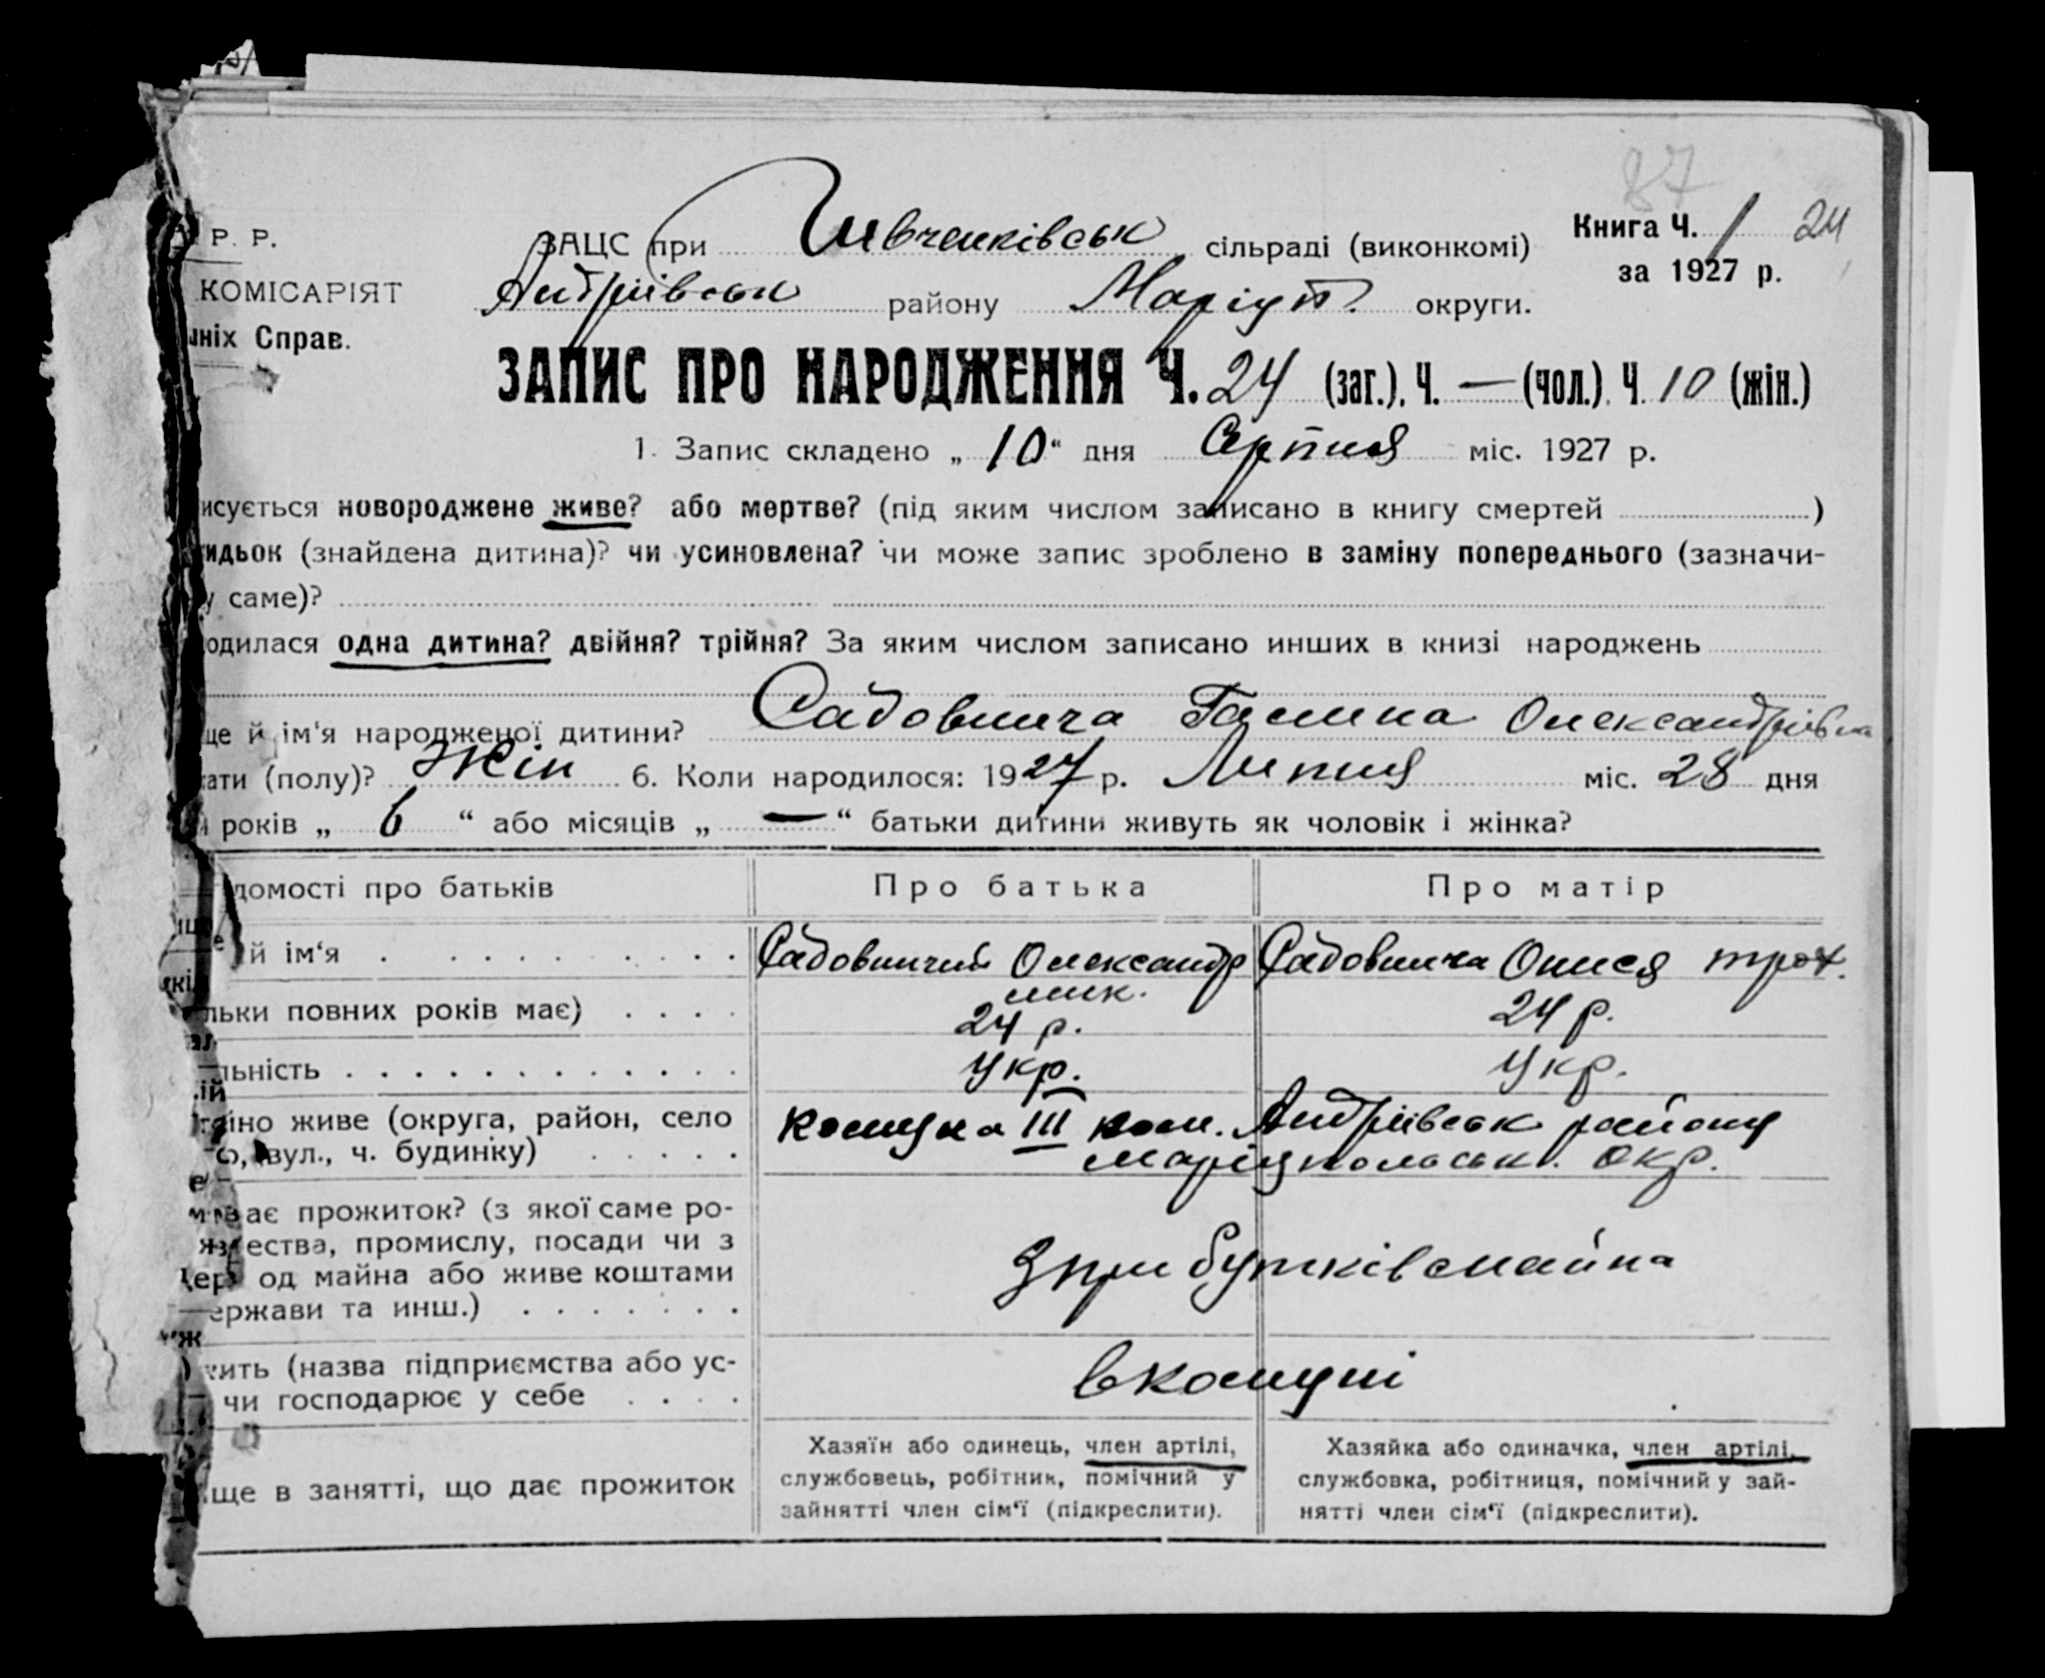 87
Р. Р.
ЗАЦС при Шевченківськ сільраді (виконкомі)
Книга Ч. 1 24
за 1927 р.
КОМІСАРІЯТ
Андріївськ району Маріуп. округи.
ніх Справ.
ЗАПИС ПРО НАРОДЖЕННЯ Ч. 24 (заг.). Ч. — (чол.). Ч. 10 (жін.)
1. Запис складено „ 10 “ дня Серпня міс. 1927 р.
исується новороджене живе? або мертве? (під яким числом записано в книгу смертей )
идьок (знайдена дитина)? чи усиновлена? чи може запис зроблено в заміну попереднього (зазначи-
у саме)?
одилася одна дитина? двійня? трійня? За яким числом записано инших в книзі народжень
ще й ім‘я народженої дитини? Садовнича Галина Олександрівна
ати (полу)? Жін 6. Коли народилося: 1927 р. Липня міс. 28 дня
років „ 6 “ або місяців „ — “ батьки дитини живуть як чоловік і жінка?
домості про батьків Про батька Про матір
й ім‘я Садовничий Олександр Садовнича Онися трох.
мик.
льки повних років має) 24 р. 24 р.
льність Укр. Укр.
йно живе (округа, район, село Комуна III ком. Андріївськ району
вул., ч. будинку) Маріупольськ. окр.
ає прожиток? (з якої саме ро-
ества, промислу, посади чи з
од майна або живе коштами З прибутків майна
ержави та инш.)
ить (назва підприємства або ус- в комуні
чи господарює у себе
Хазяїн або одинець, член артілі, Хазяйка або одиначка, член артілі,
ще в занятті, що дає прожиток службовець, робітник, помічний у службовка, робітниця, помічний у зай-
зайнятті член сім‘ї (підкреслити). нятті член сім‘ї (підкреслити).